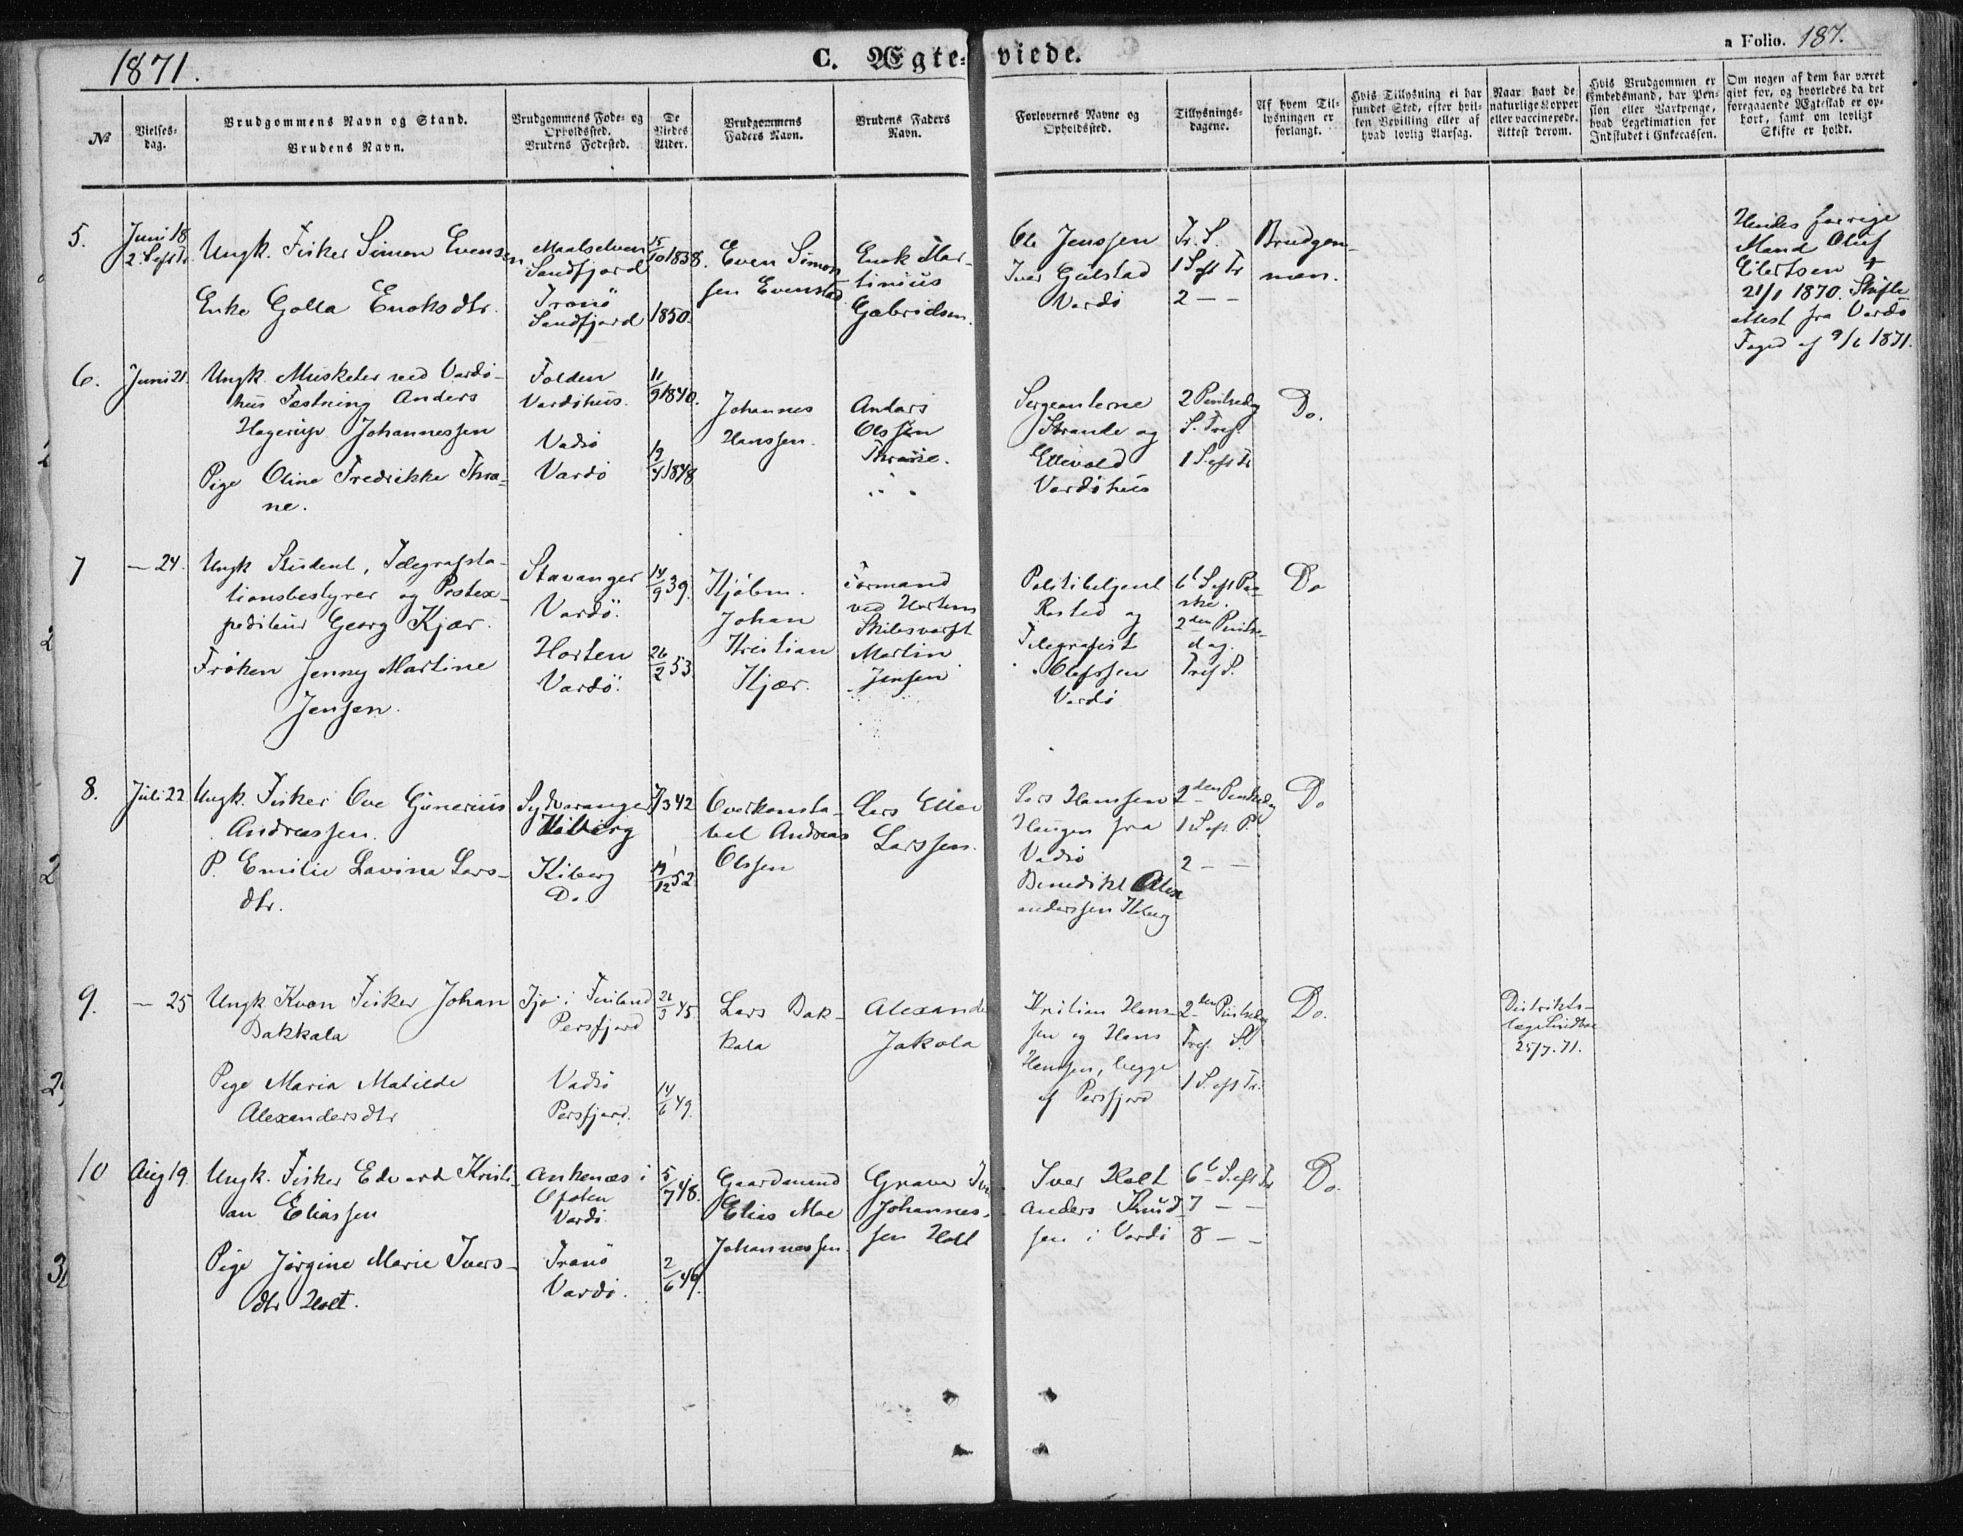 1871.
C. Ægteviede.
a Folio. 187.
№
Vielses-
dag.
Brudgommens Navn og Stand.
Brudens Navn.
Brudgommens Føde- og
Opholdssted.
Brudens Fødested.
De
Viedes
Alder.
Brudgommens
Faders Navn.
Brudens Faders
Navn.
Forlovernes Navne og
Opholdssted.
Tillysnings-
dagene.
Af hvem Til-
lysningen er
forlangt.
Hvis Tillysning ei har
fundet Sted, efter hvil-
ken Bevilling eller af
hvad lovlig Aarsag.
Naar havt de
naturlige Kopper
eller vaccinerede.
Attest derom.
Hvis Brudgommen er
Embedsmand, har Pen-
sion eller Vartpenge,
hvad Legitimation for
Indskudet i Enkecassen.
Om nogen af dem har været
gift før, og hvorledes da det
foregaaende Ægteskab er op-
hørt, samt om lovligt
Skifte er holdt.
5.
Juni 18
2. S eft Tr.
Ungk. Fisker Simon Evensen
Enke Golla Enoksdtr.
Maalselven
Sandfjord
Tranö
Sandfjord
15/10 1838.
1850.
Even Simon
sen Evenstad
Enok Mar-
tinius
Gabrielsen.
Ole Jenssen
Iver Gulstad
Vardö
Tr. S.
1 S eft Tr
2 — —
Brudgom-
men.
Hendes forrige
Mand Oluf
Eilertsen †
21/1 1870. Skifte
attest fra Vardö
Foged af 9/6 1871.
6.
Juni 21.
Ungk. Musketer ved Vardö-
hus Fæstning Anders
Hagerup Johannessen
Pige Oline Fredrikke Thra-
ne.
Folden
Vardöhus.
Vadsö
Vardö
11/9 1840.
19/4 1848
Johannes
Hanssen.
Anders
Olssen
Thrane.
Sergeanterne
Strande og
Ellevold
Vardöhus
2 Pintsedag
S. Tref.
1 S. eft Tr
Do.
7
— 24.
Ungk Student, Telegrafsta-
tionsbestyrer og Postex-
pediteur Georg Kjær.
Frøken Jenny Martine
Jensen.
Stavanger
Vardö.
Horten
Vardö.
14/9 39.
26/2 53
Kjöbm.
Johan
Kristian
Kjær.
Formand
ved Hortens
Skibsværft
Martin
Jensen
Politibetjent
Rosted og
Telegrafist
Olafssen
Vardö
6t S eft Paa-
ske.
2den Pintse-
dag.
Tref S.
Do
8.
Juli 22
Ungk. Fisker Ove Gunerius
Andreassen.
P. Emilie Lavina Lars-
dtr.
Sydvaranger
Kiberg
Kiberg
Do.
7/3 42
19/12 52.
Overkonsta-
bel Andreas
Olssen
Lars Eller
Larssen.
Lars Hanssen
Haugen fra
Vadsö
Benedikt Alex
anderssen Kiberg
2den Pintsedag
1 S. eft. P.
2 — —
Do
9.
— 25
Ungk Kvæn Fisker Johan
Bakkala
Pige Maria Matilde
Alexandersdtr
Ijo i Finland
Persfjord
Vadsö
Persfjord.
26/3 45.
14/6 49.
Lars Bak-
kala
Alexander
Jakola
Kristian Hans-
sen og Hans
Hanssen, begge
af Persfjord
2den Pintsedag
Tref. S.
1 S. eft Tr.
Do.
Distrikts-
læge Lindboe
25/7. 71.
10
Aug 19.
Ungk. Fisker Edvard Kristi-
an Eliassen
Pige Jørgine Marie Ivers-
dtr Holt.
Ankenæs i
Ofoten
Vardö
Tranö
Vardö.
5/7 48.
2/6 46.
Gaardmand
Elias Moe
Johannessen.
Graver Iver
Johannes-
sen Holt
Iver Holt
Anders Knud-
sen i Vardö
6t S. eft Tr
7 — —
8 — —
Do.